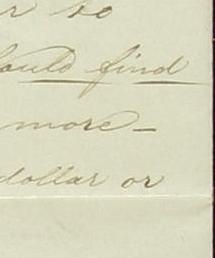 so
could find
more –
dollar or